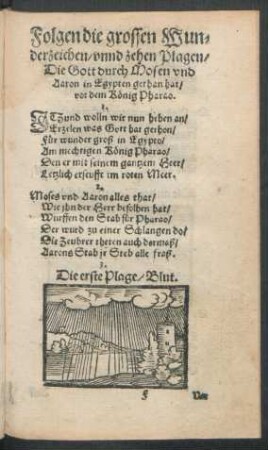 Folgen die grossen Wun-
derzeichen/vnnd zehen Plagen/
Die Gott durch Mosen vnd
Aaron in Egypten gethan hat/
vor dem König Pharao.
1.
ITzund wolln wir nun heben an/
Erzelen was Gott hat gethon/
Für wunder groß in Egypto/
Am mechtigen König Pharao/
Den er mit seinem gantzem Heer/
Letzlich erseufft im roten Meer.
2.
Moses vnd Aaron alles that/
Wie ihn der Herr befolhen hat/
Wurffen den Stab für Pharao/
Der wurd zu einer Schlangen do/
Die Zeubrer theten auch dermaß/
Aarons Stab jr Steb alle fraß.
3.
Die erste Plage/Blut.